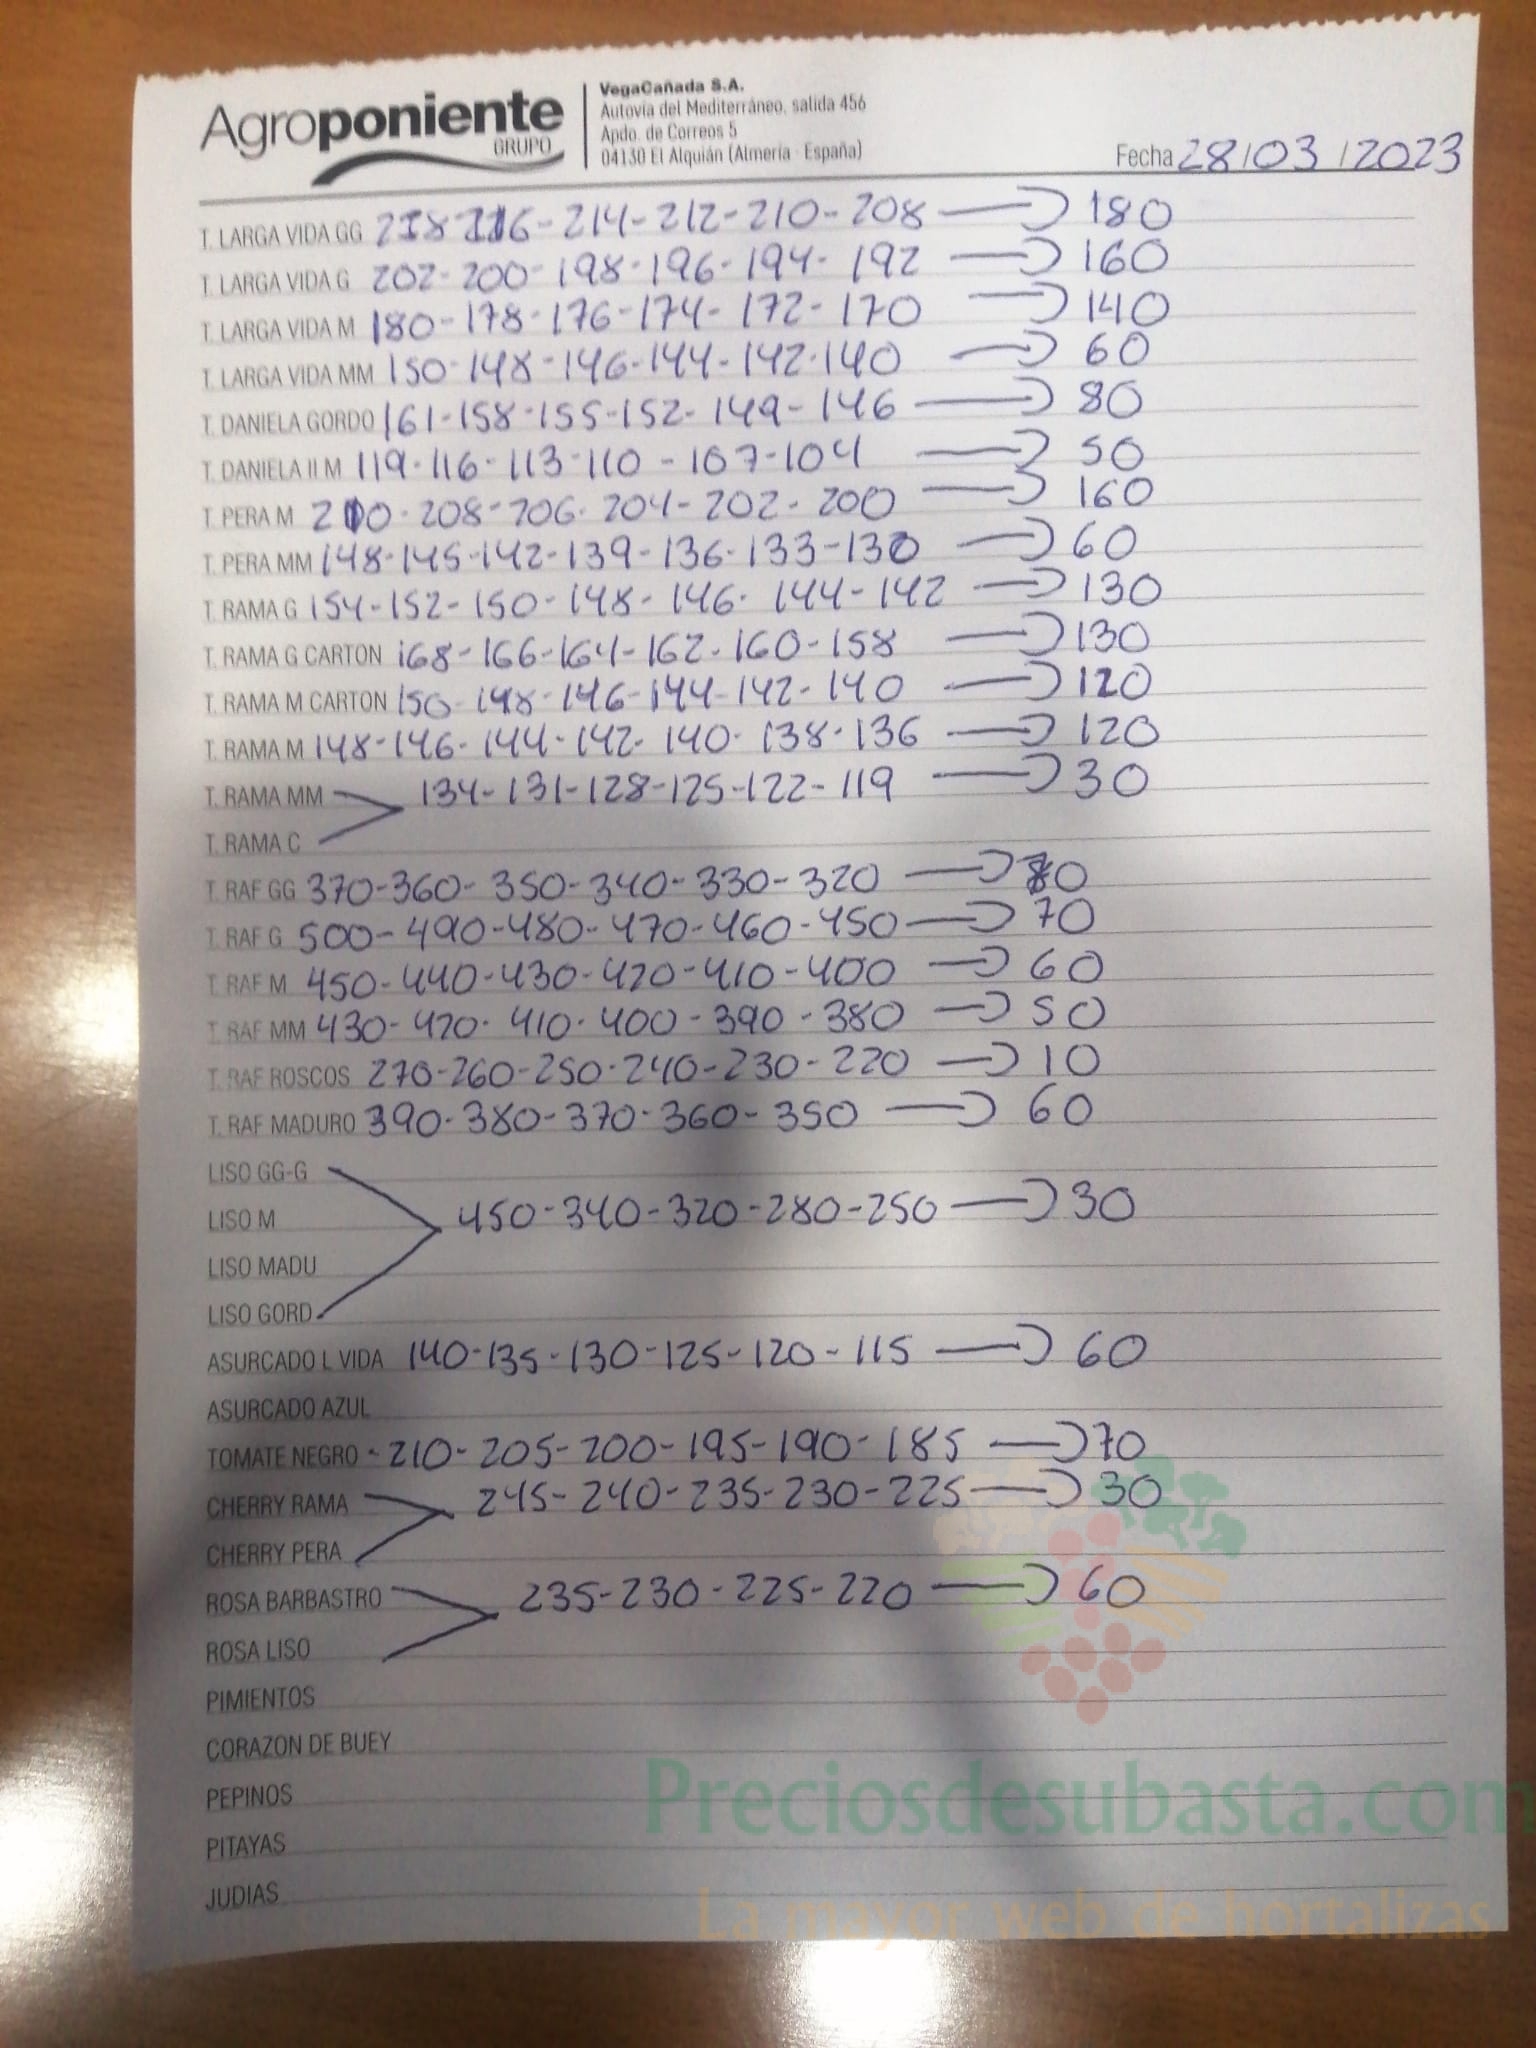 Agroponiente
GRUPO
VegaCañada S.A.
Autovía del Mediterráneo, salida 456
Apdo. de Correos 5
04130 El Alquián (Almería - España)
Fecha 28/03/2023
T. LARGA VIDA GG 218 216-214-212-210-208 180
T. LARGA VIDA G 202-200-198-196-194-192 160
T. LARGA VIDA M 180-178-176-174-172-170 140
T. LARGA VIDA MM 150-148-146-144-142-140 60
T. DANIELA GORDO 161-158-155-152-149-146 80
T. DANIELA II M 119-116-113-110-107-104 50
T. PERA M 210-208-206-204-202-200 160
T. PERA MM 148-145-142-139-136-133-130 60
T. RAMA G 154-152-150-148-146-144-142 130
T. RAMA G CARTON 168-166-164-162-160-158 130
T. RAMA M CARTON 150-148-146-144-142-140 120
T. RAMA M 148-146-144-142-140-138-136 120
T. RAMA MM 134-131-128-125-122-119 30
T. RAMA C
T. RAF GG 370-360-350-340-330-320
T. RAF G 500-490-480-470-460-450 70
T. RAF M 450-440-430-420-410-400 60
T. RAF MM 430-420-410-400-390-380 50
T. RAF ROSCOS 270-260-250-240-230-220 10
T. RAF MADURO 390-380-370-360-350 60
LISO GG-G
LISO M 450-340-320-280-250 30
LISO MADU
LISO GORD
ASURCADO L VIDA 140-135-130-125-120-115 60
ASURCADO AZUL
TOMATE NEGRO -210-205-200-195-190-185 70
CHERRY RAMA 245-240-235-230-225 30
CHERRY PERA
ROSA BARBASTRO 235-230-225-220 60
ROSA LISO
PIMIENTOS
CORAZON DE BUEY
PEPINOS
Preciosdesubasta.com
PITAYAS
JUDIAS
La mayor web de hortalizas